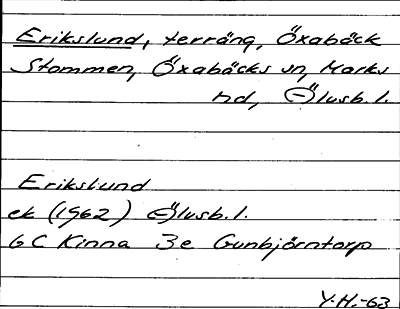 Erikslund, terräng, Öxabäck
Stommen, Öxabäcks sn, Marks
hd, Älvsb. l.
Erikslund
ek (1962) Älvsb. l.
6 C Kinna 3e Gunbjörntorp
Y.H.-63